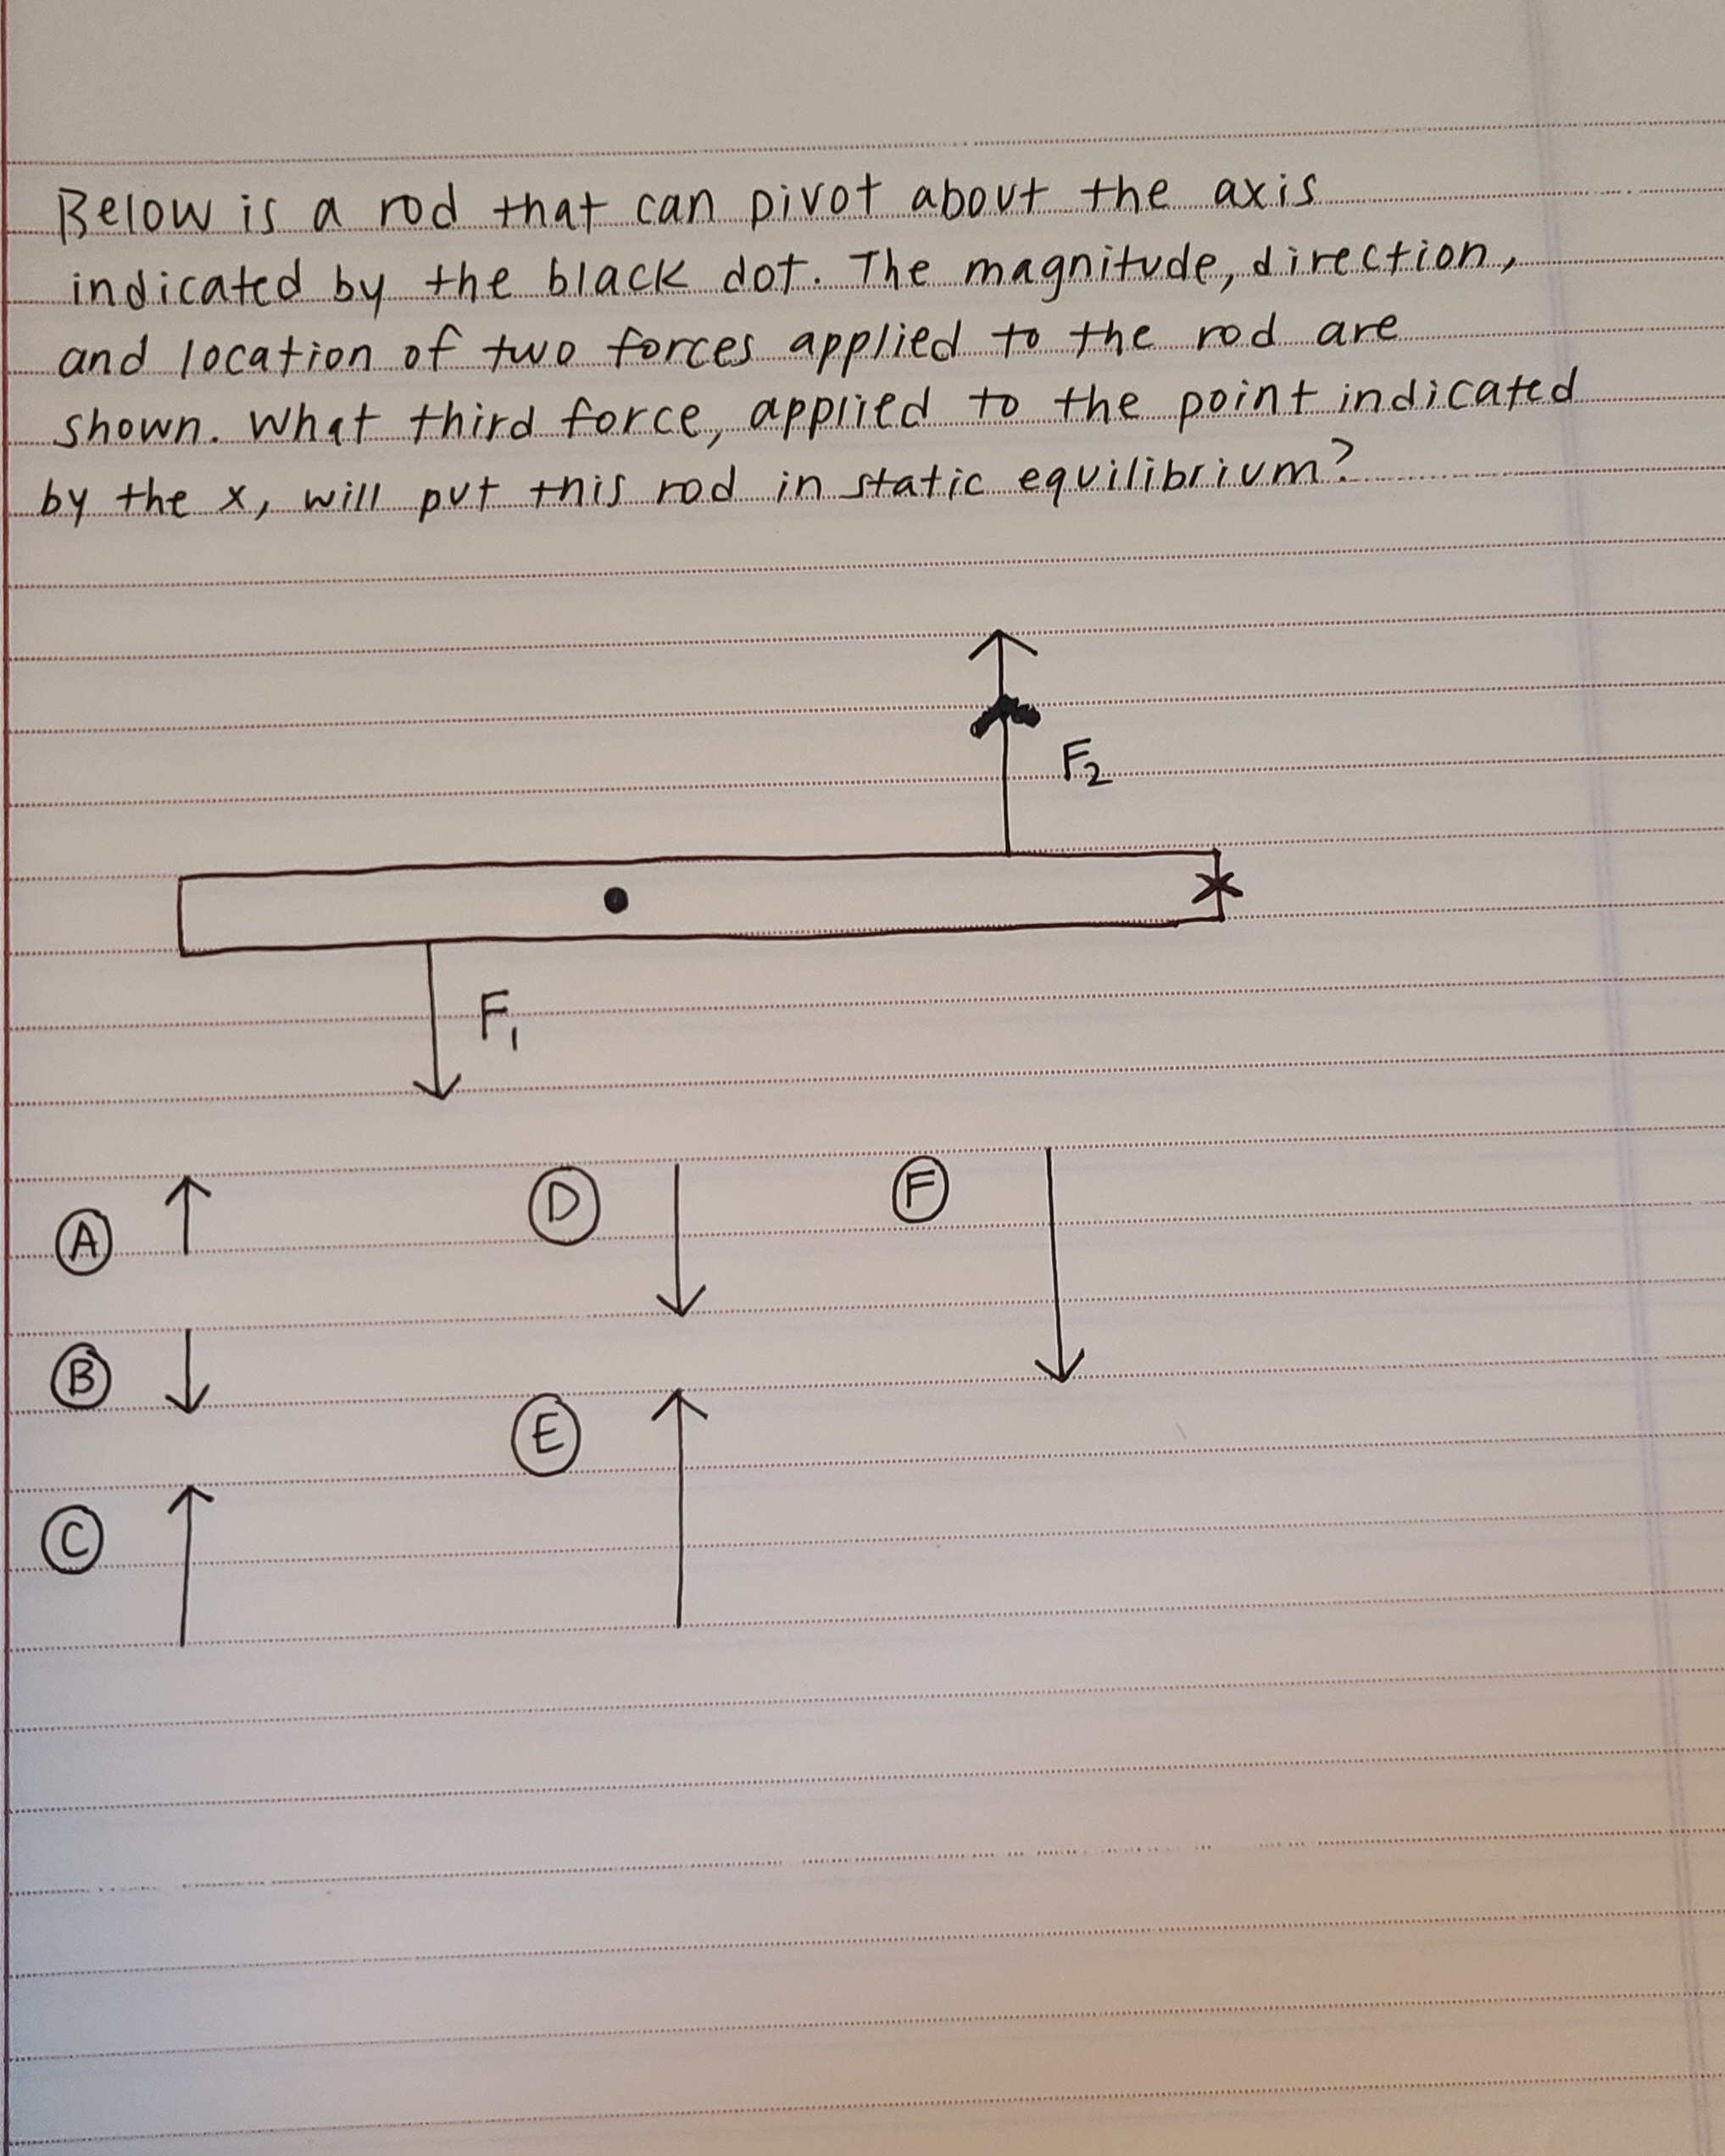 Below is a rod that can pivot about the axis
indicated by the black dot. The magnitude, direction,
and location of two forces applied to the rod are
shown. What third force, applied to the point indicated
by the x, will put this rod in static equilibrium?
F2
F1
A
D
F
B
E
C